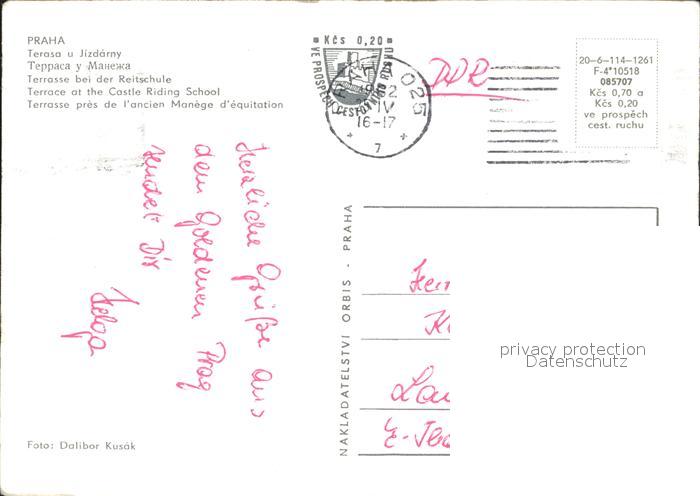 PRAHA
Terasa u Jízdárny
Терраса у Манежа
Terrasse bei der Reitschule
Terrace at the Castle Riding School
Terrasse près de l'ancien Manège d'équitation
Kčs 0,20
VE PROSPĚCH CESTOVNÍHO RUCHU
025
IV
16-17
7
DDR
20-6-114-1261
F-4*10518
085707
Kčs 0,70 a
Kčs 0,20
ve prospěch
cest. ruchu
Herzliche Grüße aus
dem Goldenen Prag
sendet Dir
Helga
NAKLADATELSTVÍ ORBIS - PRAHA
privacy protection
Datenschutz
Foto: Dalibor Kusák